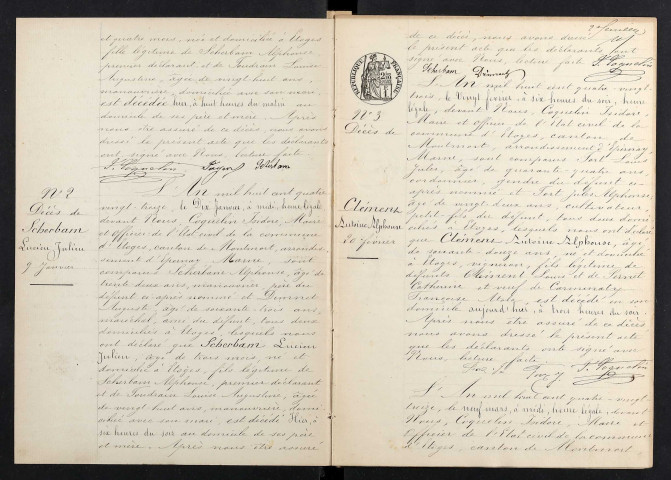 et quatre mois, née et domiciliée à Etoges
fille légitime de Scherbam Alphonse,
premier déclarant et de Foudraine Louise
Augustine, âgée de vingt huit ans,
manouvrière, domiciliée avec son mari,
est décédée hier, à huit heures du matin au
domicile de ses père et mère. Après
nous être assuré de ce décès, nous avons
dressé le présent acte que les déclarants
ont signé avec Nous, lecture faite
Scherbam
N° 2
Décès de
Scherbam
Lucien Julien
9 Janvier
L'An mil huit cent quatre
vingt-treize, le Dix Janvier, à midi, heure légale
devant Nous, Coquelin Isidore, Maire
et officier de l'Etat civil de la commune
d'Etoges, canton de Montmort, arrondis-
sement d'Epernay Marne, sont
comparus Scherbam Alphonse, âgé de
trente deux ans, manouvrier père du
défunt ci-après nommé et
Auguste, âgé de soixante trois ans,
maréchal, ami du défunt, tous deux
domiciliés à Etoges, lesquels nous
ont déclaré que Scherbam Lucien
Julien, âgé de trois mois, né et
domicilié à Etoges, fils légitime de
Scherbam Alphonse, premier déclarant
et de Foudraine Louise Augustine, âgée
de vingt huit ans, manouvrière, domi-
ciliée avec son mari, est décédé Hier, à
six heures du soir au domicile de ses père
et mère. Après nous être assuré
de ce décès, nous avons dressé
le présent acte que les déclarants ont
signé avec Nous, lecture faite
Scherbam
RÉPUBLIQUE FRANÇAISE
N° 3
Décès de
Clément
Antoine Alphonse
20 février
L'An mil huit cent quatre-vingt-
treize, le Vingt février à six heures du soir, heure
légale, devant Nous, Coquelin Isidore,
Maire et officier de l'Etat civil de la
commune d'Etoges, canton de
Montmort, arrondissement d'Epernay
Marne, sont comparus Louis
Jules, âgé de quarante quatre ans,
cordonnier, gendre du défunt ci-
après nommé et Jules Alphonse,
âgé de vingt-deux ans, cultivateur
petit-fils du défunt, tous deux domi-
ciliés à Etoges, lesquels nous ont déclaré
que Clément Antoine Alphonse, âgé
de soixante-douze ans, né et domicilié
à Etoges, vigneron, fils légitime de
défunts Clément Louis et de
Catherine et veuf de
Françoise est décédé en son
domicile aujourd'hui, à trois heures du soir.
Après nous être assuré de ce décès
nous avons dressé le présent acte
que les déclarants ont signé avec
Nous, lecture faite
L'An mil huit cent quatre-vingt-
treize, le neuf mars, à midi, heure légale, devant
Nous, Coquelin Isidore, Maire et
Officier de l'Etat civil de la commune
d'Etoges, canton de Montmort